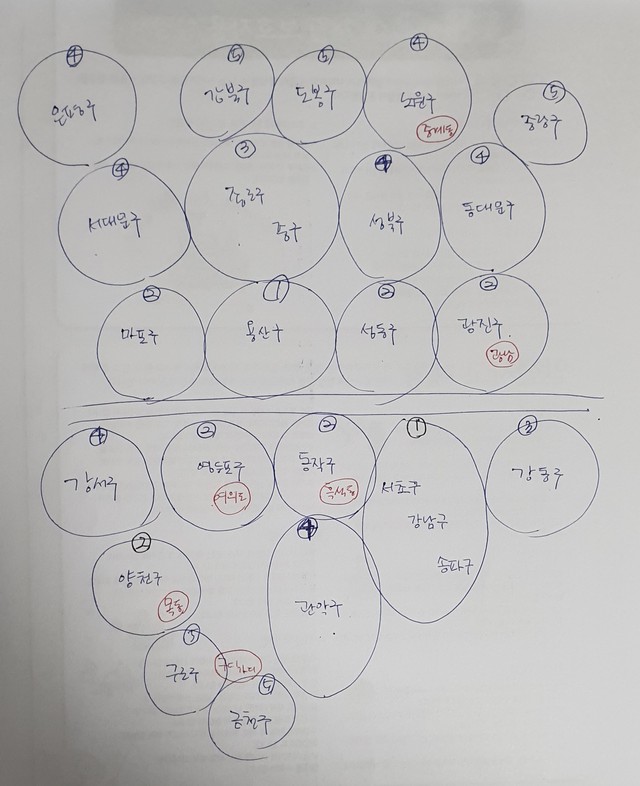 ④ ⑤ ⑤ ④ ⑤
은평구 강북구 도봉구 노원구 중랑구
중계동
④ ③ ④ ④
서대문구 종로구 성북구 동대문구
중구
② ① ② ②
마포구 용산구 성동구 광진구
광남
④ ② ② ① ③
강서구 영등포구 동작구 서초구 강동구
여의도 흑석동 강남구
② ④ 송파구
양천구 관악구
목동
⑤
구로구 구디가디
⑤
금천구